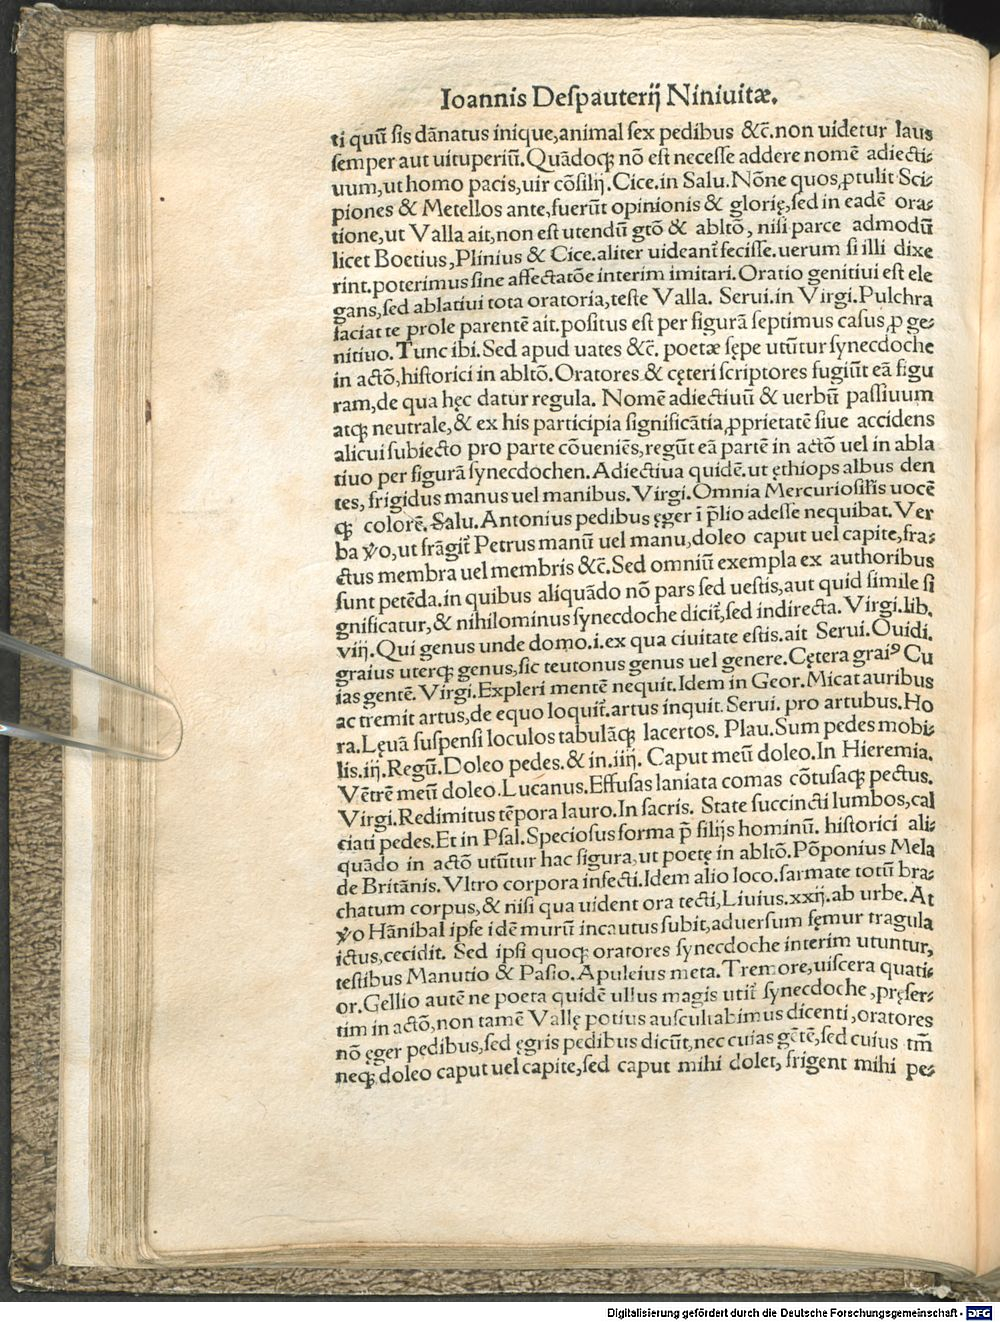 Ioannis Deſpauterij Niniuitæ.
ti quū ſis dānatus inique,animal ſex pedibus &c̄.non uidetur laus
ſemper aut uituperiū.Quādoqꝫ nō eſt neceſſe addere nomē adiecti⸗
uum,ut homo pacis,uir cōſilij.Cice.in Salu.Nōne quos,ꝓtulit Sci⸗
piones & Metellos ante,fuerūt opinionis & glorię,ſed in eadē ora⸗
tione,ut Valla ait,non eſt utendū gtō & abltō, niſi parce admodū
licet Boetius,Plinius & Cice.aliter uideant᷑ feciſſe.uerum ſi illi dixe
rint.poterimus ſine affectatōe interim imitari.Oratio genitiui eſt ele
gans,ſed ablatiui tota oratoria,teſte Valla. Serui.in Virgi.Pulchra
faciat te prole parentē ait.poſitus eſt per figurā ſeptimus caſus,ꝓ ge⸗
nitiuo.Tunc ibi.Sed apud uates &c̄. poetæ ſępe utūtur ſynecdoche
in actō,hiſtorici in abltō.Oratores & cęteri ſcriptores fugiūt eā figu
ram,de qua hęc datur regula. Nomē adiectiuū & uerbū paſſiuum
atqꝫ neutrale,& ex his participia ſignificātia,ꝓprietatē ſiue accidens
alicui ſubiecto pro parte cōueniēs,regūt eā partē in actō uel in abla
tiuo per figurā ſynecdochen.Adiectiua quidē.ut ęthiops albus den
tes, frigidus manus uel manibus. Virgi.Omnia Mercurio ſil̄is uocē
qꝫ colorē. Salu.Antonius pedibus ęger ī p̄lio adeſſe nequibat.Ver
ba ꝟo,ut frāgit᷑ Petrus manū uel manu,doleo caput uel capite,fra⸗
ctus membra uel membris &c̄.Sed omniū exempla ex authoribus
ſunt petēda.in quibus aliquādo nō pars ſed ueſtis,aut quid ſimile ſi
gnificatur,& nihilominus ſynecdoche dicit᷑,ſed indirecta. Virgi.lib.
viij.Qui genus unde domo.i.ex qua ciuitate eſtis.ait Serui.Ouidi.
graius uterqꝫ genus,ſic teutonus genus uel genere.Cętera graiꝰ Cu
ias gentē. Virgi.Expleri mentē nequit.Idem in Geor.Micat auribus
ac tremit artus,de equo loquit᷑.artus inquit Serui. pro artubus.Ho
ra.Lęuā ſuſpenſi loculos tabulāqꝫ lacertos. Plau.Sum pedes mobi⸗
lis.iij.Regū.Doleo pedes.& in.iiij. Caput meū doleo.In Hieremia.
Vētrē meū doleo.Lucanus.Effuſas laniata comas cōtuſaqꝫ pectus.
Virgi.Redimitus tēpora lauro.In ſacris. State ſuccincti lumbos,cal
ciati pedes.Et in Pſal.Specioſus forma p̄ filijs hominū. hiſtorici ali⸗
quādo in actō utūtur hac figura,ut poetę in abltō.Pōponius Mela
de Britānis.Vltro corpora infecti.Idem alio loco.ſarmate totū bra⸗
chatum corpus,& niſi qua uident ora tecti,Liuius.xxij.ab urbe.At
ꝟo Hānibal ipſe idē murū incautus ſubit,aduerſum fęmur tragula
ictus,cecidit. Sed ipſi quoqꝫ oratores ſynecdoche interim utuntur,
teſtibus Manutio & Paſio.Apuleius meta.Tremore,uiſcera quati⸗
or.Gellio autē ne poeta quidē ullus magis utit᷑ ſynecdoche,pręſer⸗
tim in actō,non tamē Vallę potius auſcultabimus dicenti,oratores
nō ęger pedibus,ſed ęgris pedibus dicūt,nec cuias gētē,ſed cuius tm̄
neqꝫ doleo caput uel capite,ſed caput mihi dolet, frigent mihi pe⸗
Digitalisierung gefördert durch die Deutsche Forschungsgemeinschaft - DFG